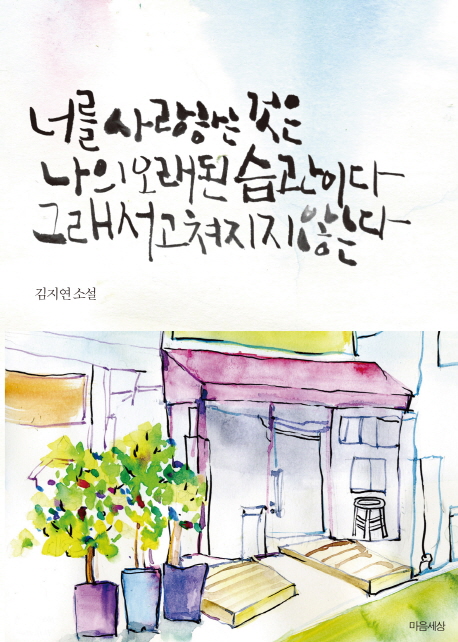 너를 사랑하는 것은
나의 오래된 습관이다
그래서 고쳐지지 않는다
김지연 소설
마음세상